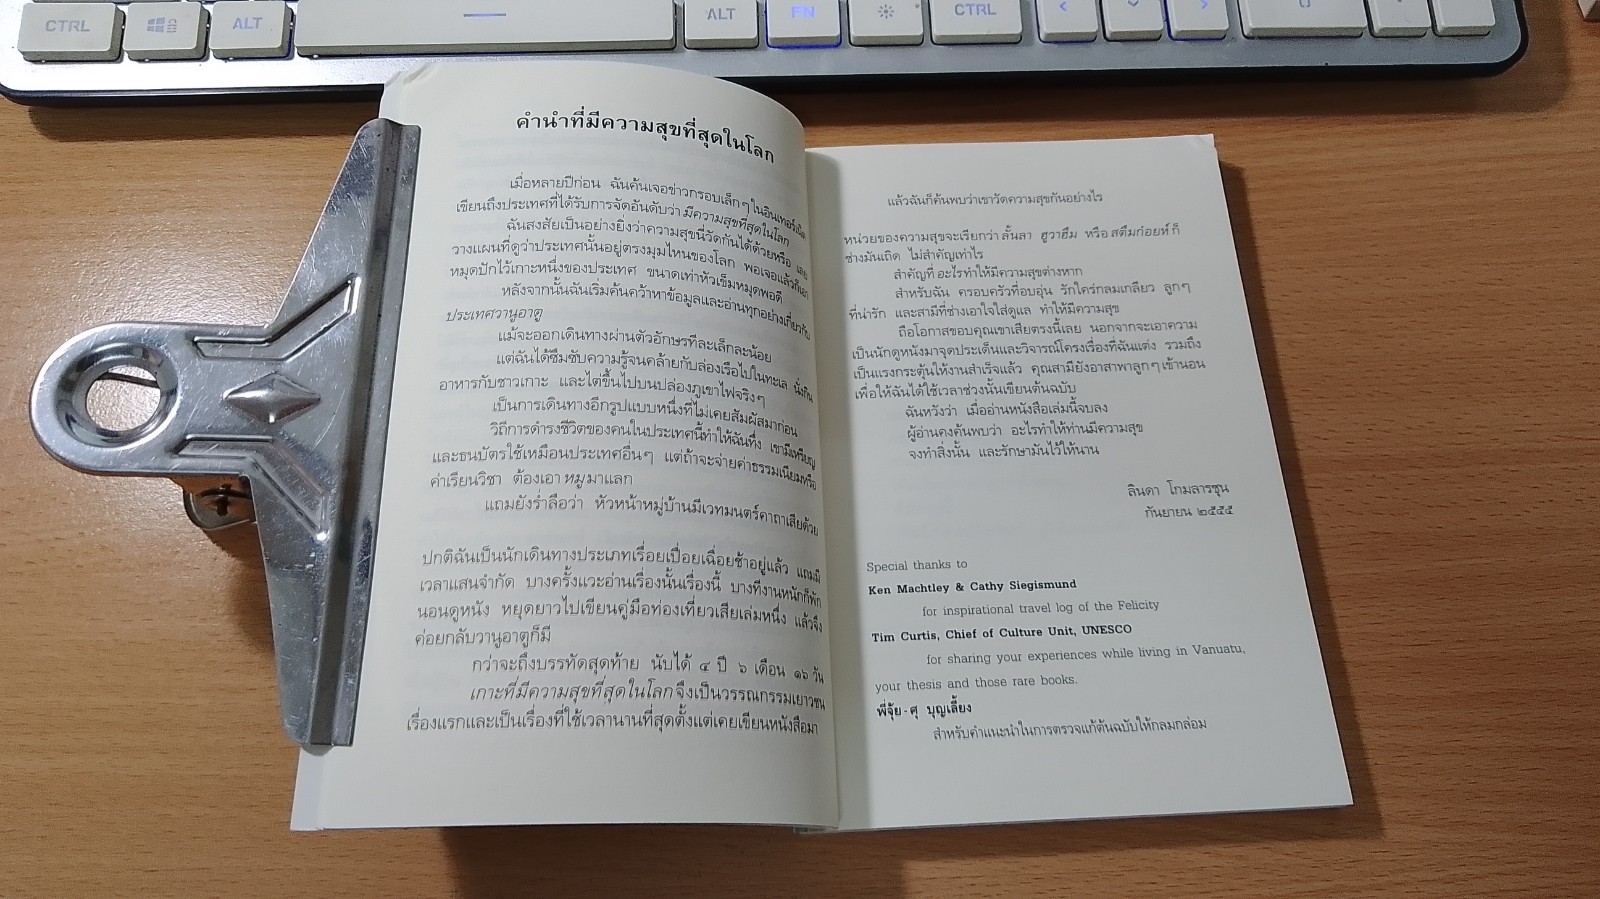 CTRL ALT ALT FN CTRL
คำนำที่มีความสุขที่สุดในโลก
เมื่อหลายปีก่อน ฉันค้นเจอข่าวกรอบเล็กๆ ในอินเทอร์เน็ต
เขียนถึงประเทศที่ได้รับการจัดอันดับว่า มีความสุขที่สุดในโลก
ฉันสงสัยเป็นอย่างยิ่งว่าความสุขนี่วัดกันได้ด้วยหรือ เลย
วางแผนที่ดูว่าประเทศนั้นอยู่ตรงมุมไหนของโลก พอเจอแล้วก็เอา
หมุดปักไว้เกาะหนึ่งของประเทศ ขนาดเท่าหัวเข็มหมุดพอดี
หลังจากนั้นฉันเริ่มค้นคว้าหาข้อมูลและอ่านทุกอย่างเกี่ยวกับ
ประเทศวานูอาตู
แม้จะออกเดินทางผ่านตัวอักษรทีละเล็กละน้อย
แต่ฉันได้ซึมซับความรู้จนคล้ายกับล่องเรือไปในทะเล นั่งกิน
อาหารกับชาวเกาะ และไต่ขึ้นไปบนปล่องภูเขาไฟจริงๆ
เป็นการเดินทางอีกรูปแบบหนึ่งที่ไม่เคยสัมผัสมาก่อน
วิถีการดำรงชีวิตของคนในประเทศนี้ทำให้ฉันทึ่ง เขามีเหรียญ
และธนบัตรใช้เหมือนประเทศอื่นๆ แต่ถ้าจะจ่ายค่าธรรมเนียมหรือ
ค่าเรียนวิชา ต้องเอา หมู มาแลก
แถมยังร่ำลือว่า หัวหน้าหมู่บ้านมีเวทมนตร์คาถาเสียด้วย
ปกติฉันเป็นนักเดินทางประเภทเรื่อยเปื่อยเฉื่อยช้าอยู่แล้ว แถมมี
เวลาแสนจำกัด บางครั้งแวะอ่านเรื่องนั้นเรื่องนี้ บางทีงานหนักก็พัก
นอนดูหนัง หยุดยาวไปเขียนคู่มือท่องเที่ยวเสียเล่มหนึ่ง แล้วจึง
ค่อยกลับวานูอาตูก็มี
กว่าจะถึงบรรทัดสุดท้าย นับได้ ๔ ปี ๖ เดือน ๑๖ วัน
เกาะที่มีความสุขที่สุดในโลก จึงเป็นวรรณกรรมเยาวชน
เรื่องแรกและเป็นเรื่องที่ใช้เวลานานที่สุดตั้งแต่เคยเขียนหนังสือมา
แล้วฉันก็ค้นพบว่าเขาวัดความสุขกันอย่างไร
หน่วยของความสุขจะเรียกว่า ลั้นลา ฮูวาฮึม หรือ สตึมก่อยห์ ก็
ช่างมันเถิด ไม่สำคัญเท่าไร
สำคัญที่ อะไรทำให้มีความสุขต่างหาก
สำหรับฉัน ครอบครัวที่อบอุ่น รักใคร่กลมเกลียว ลูกๆ
ที่น่ารัก และสามีที่ช่างเอาใจใส่ดูแล ทำให้มีความสุข
ถือโอกาสขอบคุณเขาเสียตรงนี้เลย นอกจากจะเอาความ
เป็นนักดูหนังมาจุดประเด็นและวิจารณ์โครงเรื่องที่ฉันแต่ง รวมถึง
เป็นแรงกระตุ้นให้งานสำเร็จแล้ว คุณสามียังอาสาพาลูกๆ เข้านอน
เพื่อให้ฉันได้ใช้เวลาช่วงนั้นเขียนต้นฉบับ
ฉันหวังว่า เมื่ออ่านหนังสือเล่มนี้จบลง
ผู้อ่านคงค้นพบว่า อะไรทำให้ท่านมีความสุข
จงทำสิ่งนั้น และรักษามันไว้ให้นาน
ลินดา โกมลารชุน
กันยายน ๒๕๕๕
Special thanks to
Ken Machtley & Cathy Siegismund
for inspirational travel log of the Felicity
Tim Curtis, Chief of Culture Unit, UNESCO
for sharing your experiences while living in Vanuatu,
your thesis and those rare books.
พี่จุ้ย - ศุ บุญเลี้ยง
สำหรับคำแนะนำในการตรวจแก้ต้นฉบับให้กลมกล่อม